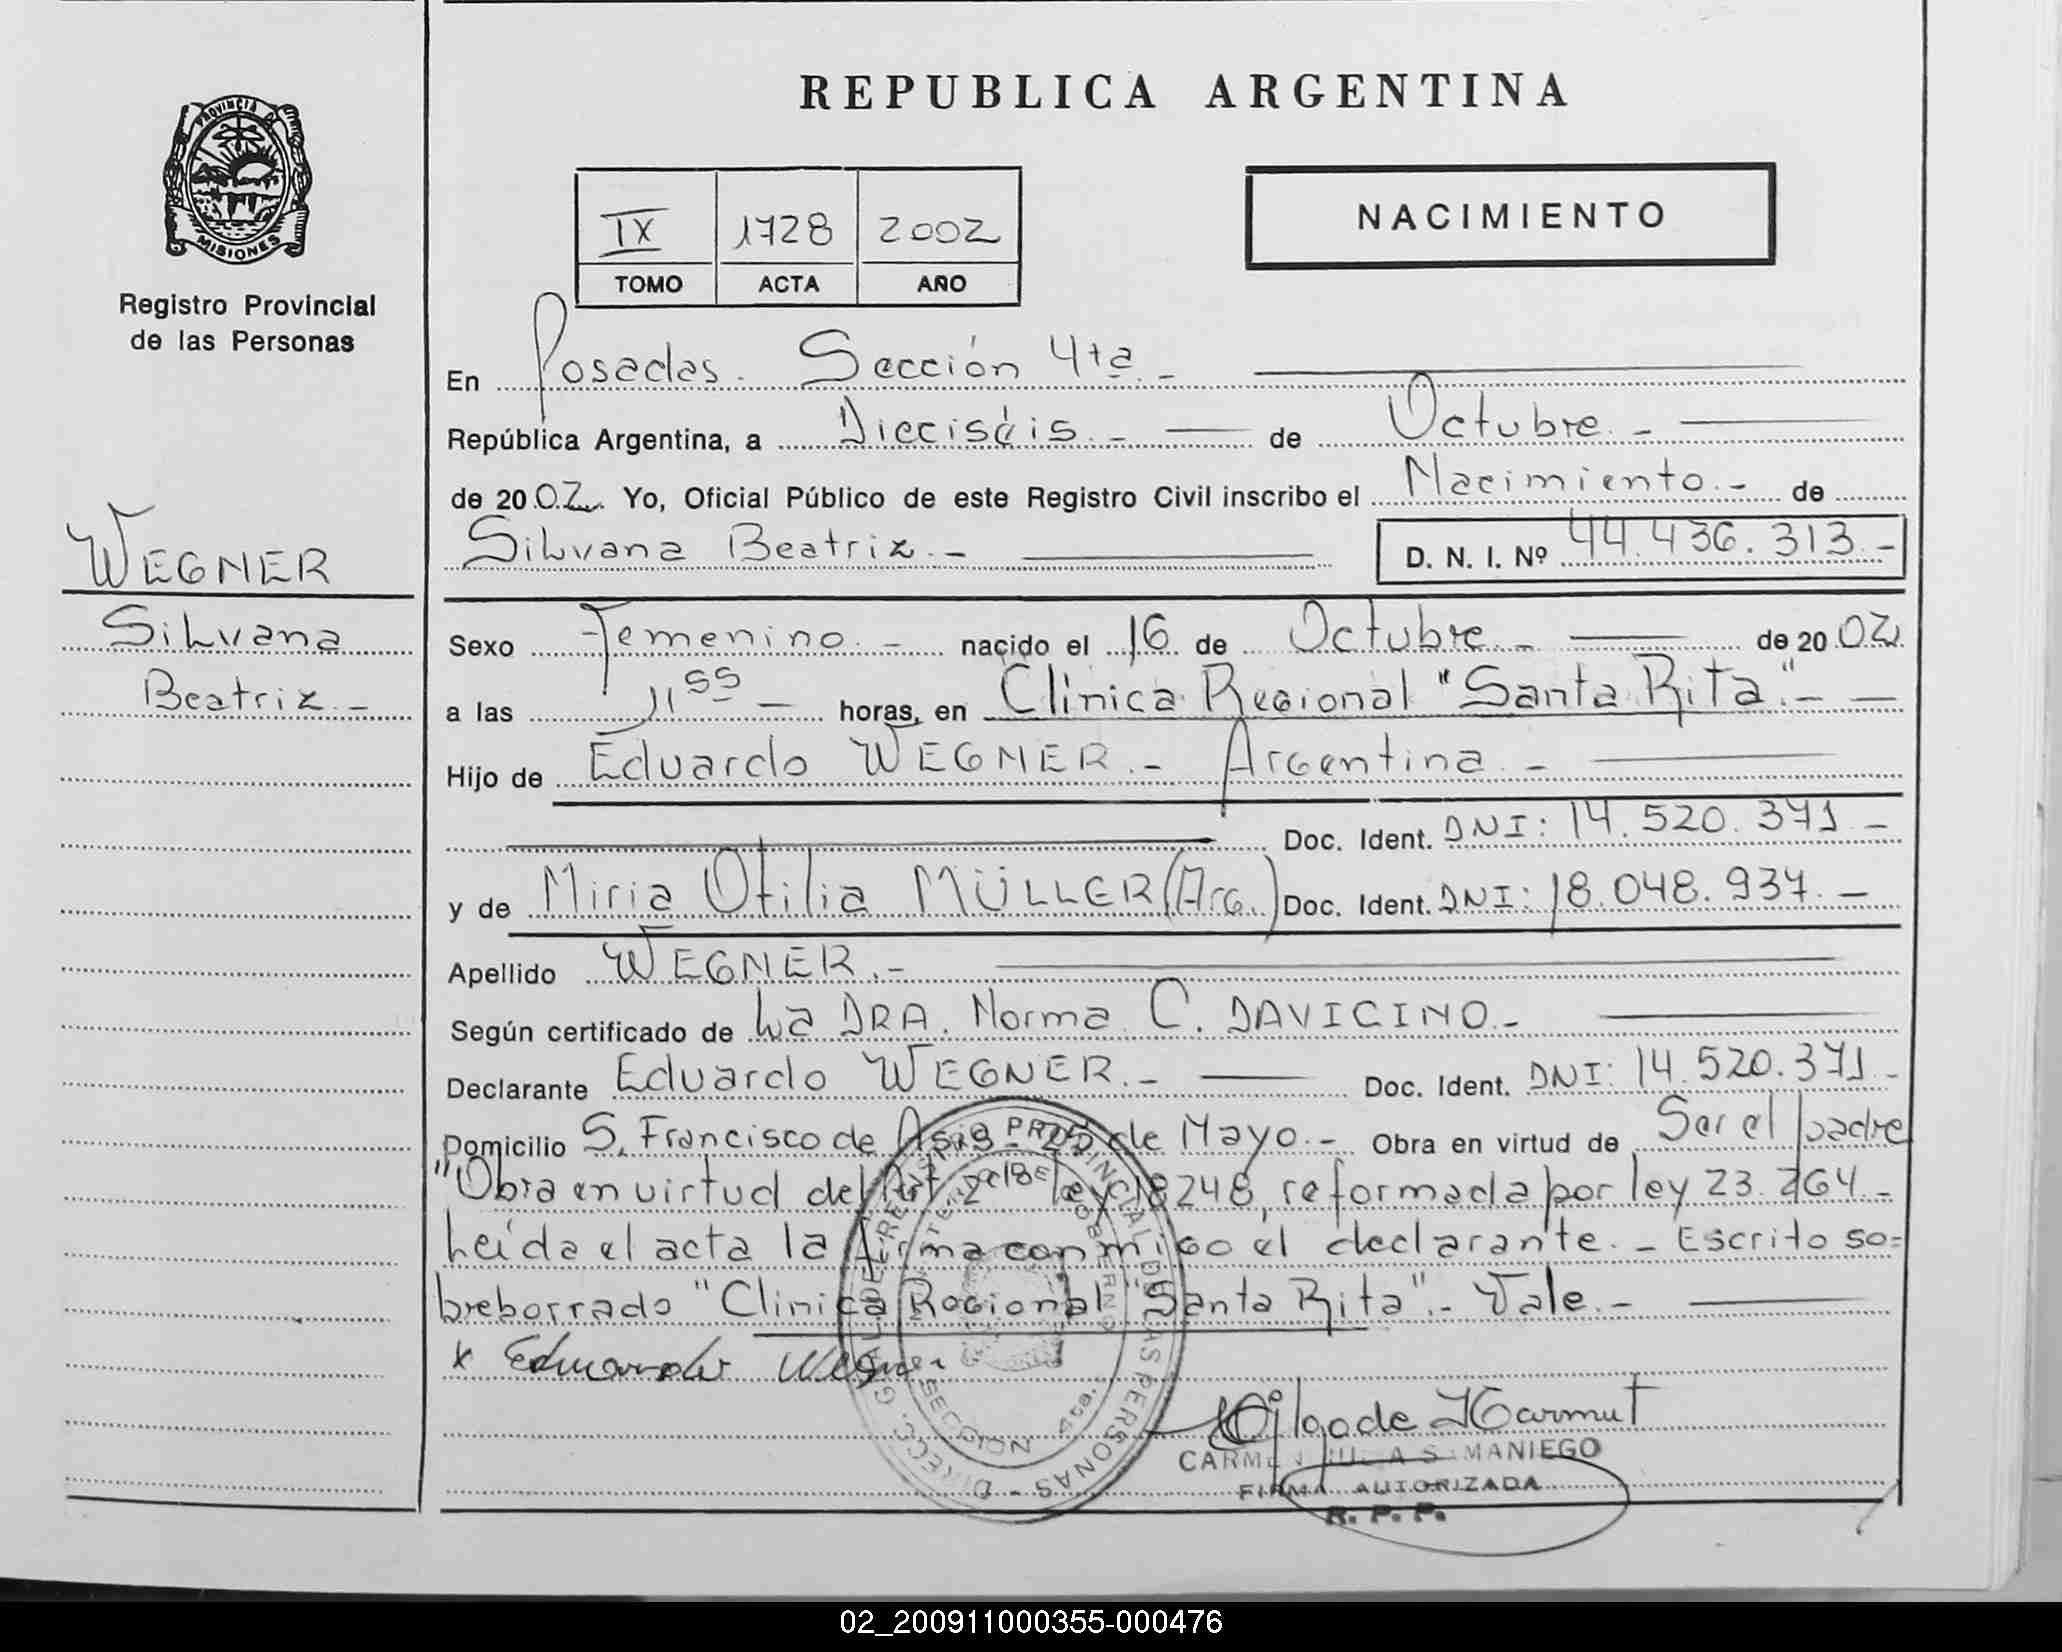 REPUBLICA ARGENTINA
PROVINCIA DE
MISIONES
Registro Provincial
de las Personas
IX 1728 2002
TOMO ACTA AÑO
NACIMIENTO
WEGNER
Silvana
Beatriz.-
En Posadas. Sección 4ta.-
República Argentina, a Dieciséis.- de Octubre.-
de 20 02. Yo, Oficial Público de este Registro Civil inscribo el Nacimiento.- de
Silvana Beatriz.- D. N. I. Nº 44.436.313.-
Sexo Femenino.- nacido el 16 de Octubre.- de 20 02.
a las 11 55 - horas, en Clínica Regional "Santa Rita".-
Hijo de Eduardo WEGNER.- Argentina.-
Doc. Ident. DNI: 14.520.371.-
y de Miria Otilia MÜLLER (Arg.) Doc. Ident. DNI: 18.048.937.-
Apellido WEGNER.-
Según certificado de La DRA. Norma C. DAVICINO.-
Declarante Eduardo WEGNER.- Doc. Ident. DNI: 14.520.371.-
Domicilio S. Francisco de Asis - 25 de Mayo.- Obra en virtud de Ser el padre
"Obra en virtud del Art. 2 de ley 18248, reformada por ley 23.264.-
Leída el acta la firma conmigo él declarante.- Escrito so=
breborrado "Clinica Regional "Santa Rita".- Vale.-
x Eduardo Wegner
DIRECC. GRAL. DE REGISTRO PROVINCIAL DE LAS PERSONAS -
SECCION 4ta.
CARMEN JULIA SAMANIEGO
FIRMA AUTORIZADA
R. P. P.
02_200911000355-000476